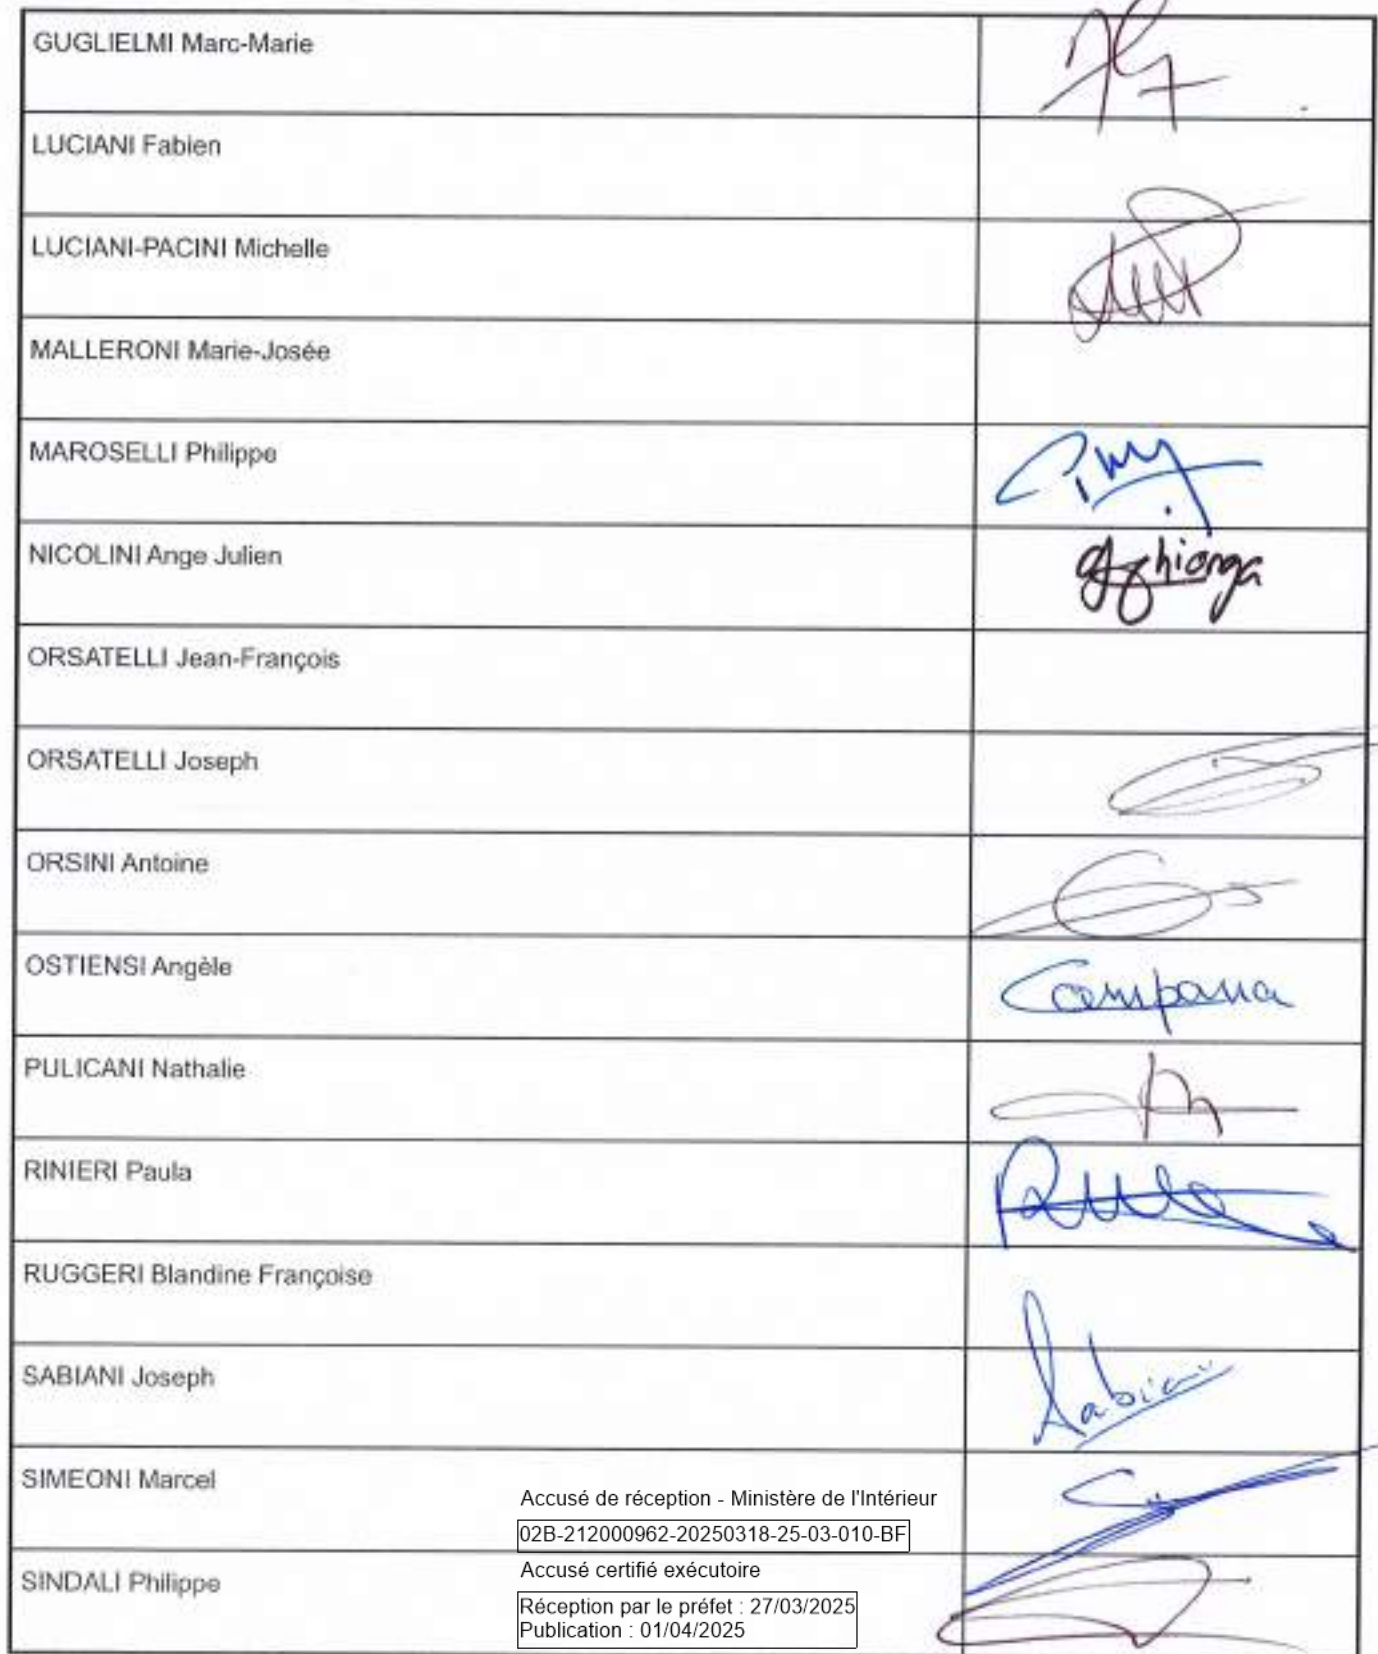 GUGLIELMI Marc-Marie
LUCIANI Fabien
LUCIANI-PACINI Michelle
MALLERONI Marie-Josée
MAROSELLI Philippe
NICOLINI Ange Julien
ORSATELLI Jean-François
ORSATELLI Joseph
ORSINI Antoine
OSTIENSI Angèle
Campana
PULICANI Nathalie
RINIERI Paula
RUGGERI Blandine Françoise
SABIANI Joseph
Sabiani
SIMEONI Marcel
Accusé de réception - Ministère de l'Intérieur
02B-212000962-20250318-25-03-010-BF
Accusé certifié exécutoire
SINDALI Philippe
Réception par le préfet : 27/03/2025
Publication : 01/04/2025